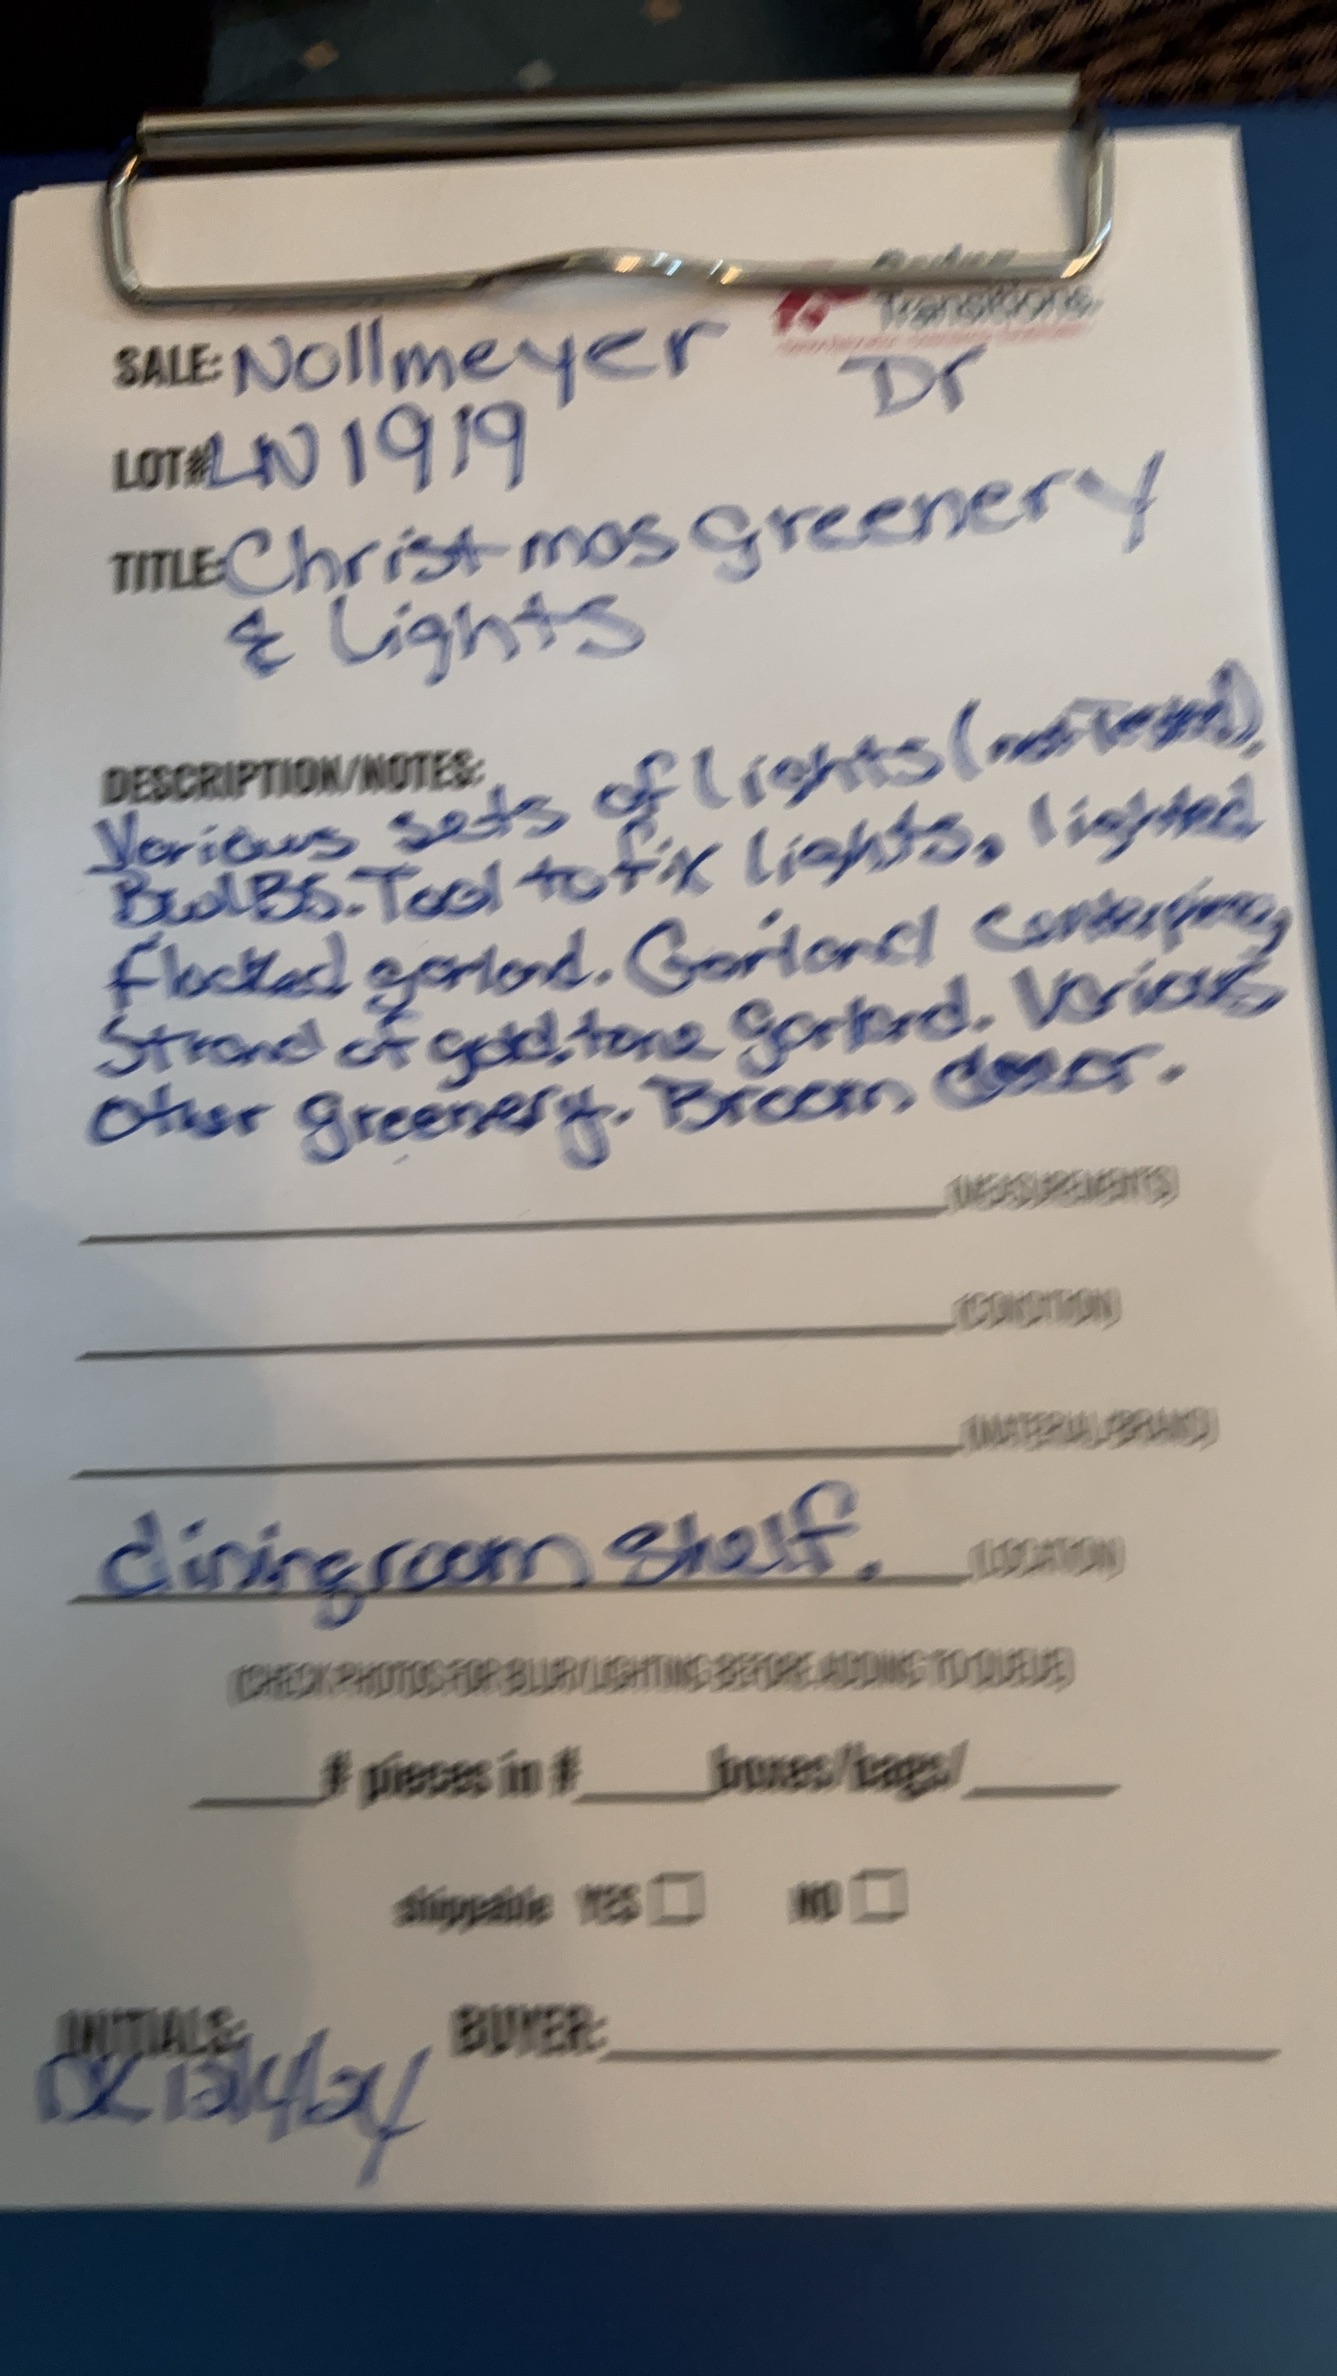 Transitions
SALE: Nollmeyer Dr
LOT# LN1919
TITLE: Christmas greenery
& Lights
DESCRIPTION/NOTES:
Various sets of lights (not Tested),
BulBS. Tool to fix lights, lighted
flocked garland. Garland centerpiece,
Strand of gold tone garland. Various
other greenery. Broom decor.
(MEASUREMENTS)
(CONDITION)
(MATERIAL/BRAND)
diningroom shelf. (LOCATION)
(CHECK PHOTOS FOR BLUR/LIGHTING BEFORE ADDING TO QUEUE)
# pieces in # boxes/bags/
shippable YES NO
INITIALS: BUYER:
12/4/24